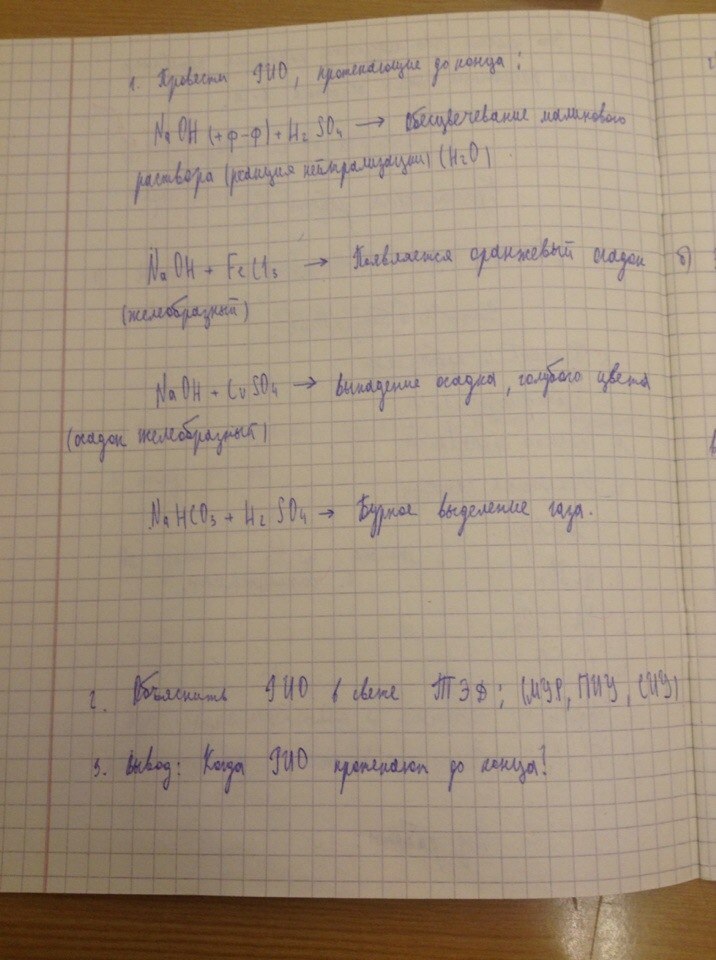 1. Провести РИО, протекающие до конца:
NaOH (+ф-ф) + H2SO4 → Обесцвечевание малинового
раствора (реакция нейтрализации) (H2O)
NaOH + FeCl3 → Появляется оранжевый осадок б)
(желеобразный)
NaOH + CuSO4 → выпадение осадка, голубого цвета
(осадок желеобразный)
NaHCO3 + H2SO4 → Бурное выделение газа.
2. Объяснить РИО в свете ТЭД; (МУР, ПИУ, СИУ)
3. Вывод: Когда РИО протекают до конца?